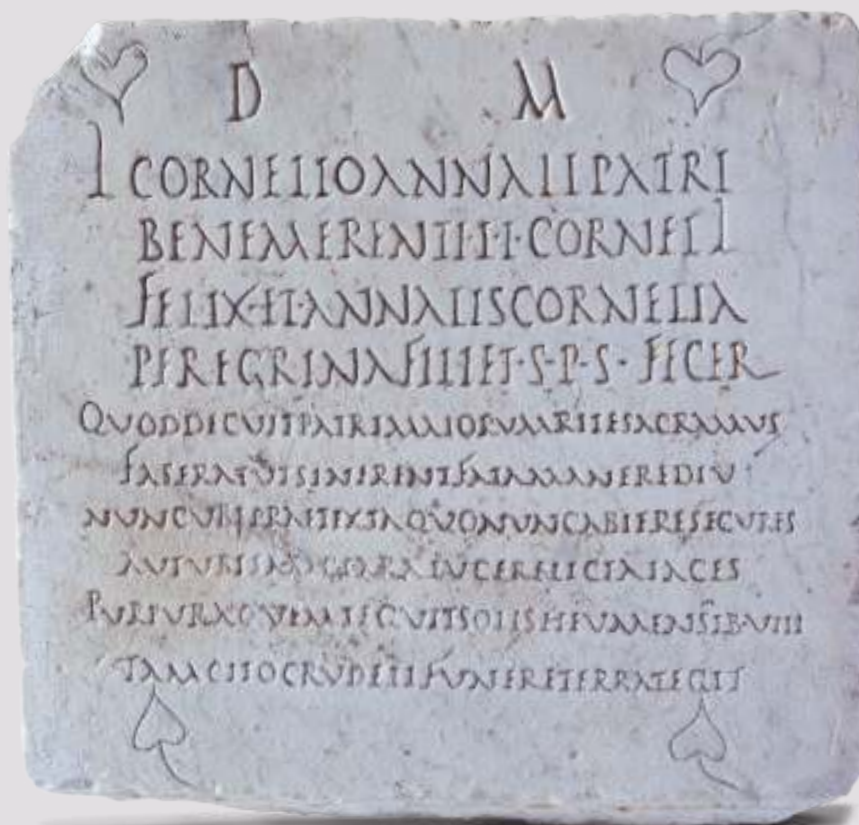 D M
L CORNELIO ANNALI PATRI
BENEMERENTI CORNELI
FELIX·ET·ANNALIS CORNELIA
PEREGRINA FILI ET·S·P·S·FECER
QVOD DECVIT RITE SACRAMVS
FAS ERAT VT SINERENT FATA MANERE DIV
NVNC VBI PRAETEXTA QVO NVNC ABIERE SECVRES
AVT VBI LVCE RELICTA IACES
PVRPVRA QVEM TECVIT SOLIS HEV MENSIB VIII
TAM CITO CRVDELI FVNERE TERRA TEGIT